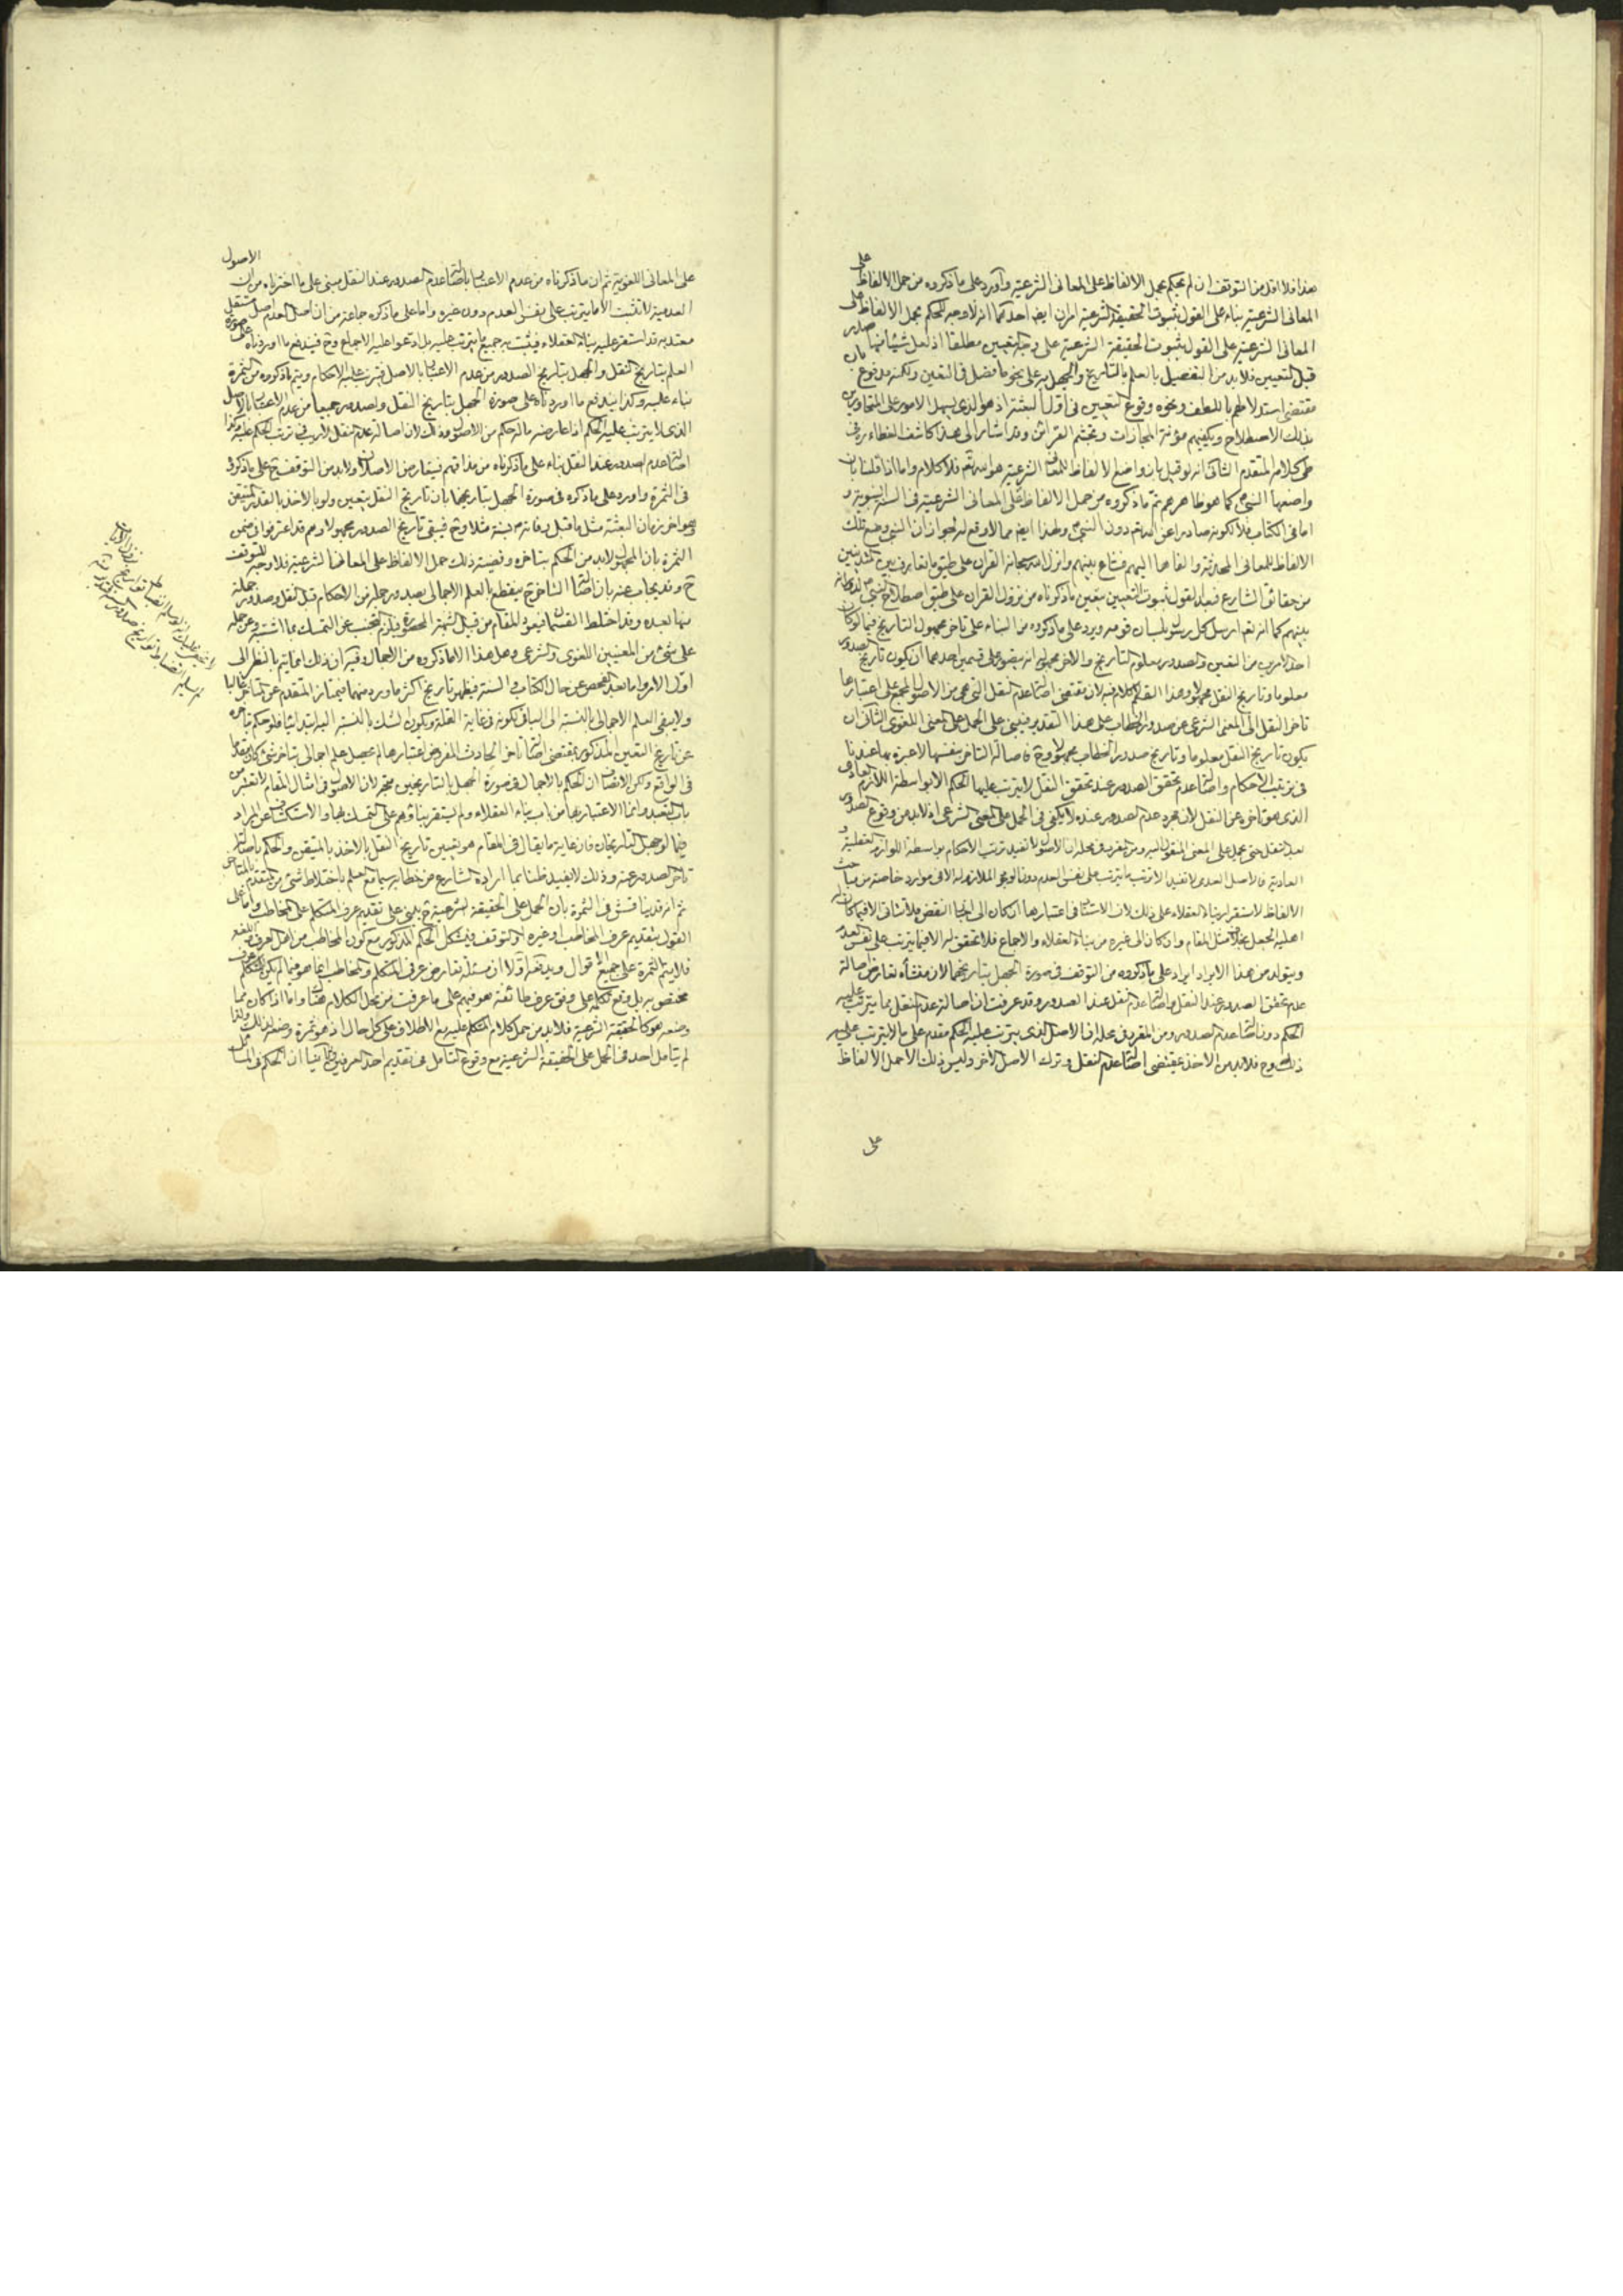 هذا فلا اقل من التوقف ان لم يحكم بحمل الالفاظ على المعانى الشرعية واورد على ما ذكروه من حمل الالفاظ على
المعانى الشرعية بناء على القول بثبوت الحقيقة الشرعية امران ايضا احدهما انه لا وجه للحكم بحمل الالفاظ على
المعانى الشرعية على القول بثبوت الحقيقة الشرعية على وجه التعيين مطلقا اذ لعل شيئا منها صادر
قبل التعيين فلا بد من التفصيل بالعلم بالتاريخ والجهل به على نحو ما فصل فى التعين ولكنه مدفوع بان
مقتضى استدلالهم باللطف ونحوه وقوع التعيين فى اول البعثة اذ هو الذى يسهل الامور على المتحاورين
بذلك الاصطلاح ويكفيهم مؤنة المجازات وتجشم القرائن وقد اشار الى هذا كاشف الغطاء ره فى
طى كلامه المتقدم الثانى انه لو قيل بان واضع الالفاظ للمعانى الشرعية هو الله تعم فلا كلام واما اذا قلنا بان
واضعها النبى ص كما هو ظاهرهم ثم ما ذكروه من حمل الالفاظ على المعانى الشرعية فى السنة النبوية و
اما فى الكتاب فلا لكونه صادرا عن الله تعم دون النبى ص ولهذا ايضا مما لا وقع له لجواز ان النبى وضع تلك
الالفاظ للمعانى المحدثة والقاها اليهم فشاع بينهم وانزل الله سبحانه القران على طبق ما تعارف بين المتدينين
من حقائق الشارع فبعد القول بثبوت التعيين يتعين ما ذكرناه من نزول القران على طبق اصطلاح النبى ص الدائر
بينهم كما انه تعم ارسل كل رسول بلسان قومه ويرد على ما ذكروه من البناء على تاخر مجهول التاريخ فيما لو كان
احد الامرين من التعين والصدور معلوم التاريخ والاخر مجهوله انه يتصور على قسمين احدهما ان يكون تاريخ الصدور
معلوما وتاريخ النقل مجهولا وهذا القسم لا كلام فيه لان مقتضى اصالة عدم النقل التى هى من الاصول المجمع على اعتبارها
تاخر النقل الى المعنى الشرعى عن صدور الخطاب على هذا التقدير فيبنى على الحمل على المعنى اللغوى الثانى ان
يكون تاريخ النقل معلوما وتاريخ صدور الخطاب مجهولا وح فاصالة التاخر بنفسها لا عبرة بها عندنا
فى ترتيب الاحكام واصالة عدم تحقق الصدور عند تحقق النقل لا يترتب عليها الحكم الا بواسطة اللازم العادى
الذى هو تاخره عن النقل لان مجرد عدم الصدور عنده لا يكفى فى الحمل على المعنى الشرعى اذ لا بد من وقوع الصدور
بعد النقل حتى يحمل على المعنى المنقول اليه ومن المقرر فى محله ان الاصول لا تفيد ترتب الاحكام بواسطة اللوازم العقلية و
العادية فالاصل العدمى لا تفيد الا ترتب ما يترتب على نفس العدم دون لوجو الملازم له الا فى موارد خاصة من مباحث
الالفاظ لاستقرار بناء العقلاء على ذلك لان الاستناد فى اعتبارها ان كان الى اخبار النقض فلا تتأتى الا فيما كان له
اهلية الجعل بخلاف مثل المقام وان كان الى غيره من بناء العقلاء والاجماع فلا تحقق له الا فيما يترتب على نفس العدم
ويتولد من هذا الايراد ايراد على ما ذكروه من التوقف فى صورة الجهل بتاريخهما لان منشأه تعارض اصالة
عدم تحقق الصدور عند النقل واصالة عدم النقل عند الصدور وقد عرفت ان اصالة عدم النقل مما يترتب عليه
الحكم دون اصالة عدم الصدور ومن المقرر فى محله ان الاصل الذى يترتب عليه الحكم مقدم على ما لا يترتب عليه
ذلك وح فلا بد من الاخذ بمقتضى اصالة عدم النقل وترك الاصل الاخر وليس ذلك الا حمل الالفاظ
على
على المعانى اللغوية ثم ان ما ذكرناه من عدم الاعتبار باصالة عدم الصدور عند النقل مبنى على ما اخترناه من ان الاصول
العدمية لا تثبت الا ما يترتب على نفس العدم دون غيره واما على ما ذكره جماعة من ان اصل العدم اصل مستقل
معتد به قد استقر عليه بناء العقلاء فيثبت به جميع ما يترتب عليه بل ادعوا عليه الاجماع وح فيندفع ما اوردناه على صورة
العلم بتاريخ النقل والجهل بتاريخ الصدور من عدم الاعتبار بالاصل فيترتب عليه الاحكام ويتم ما ذكروه من الثمرة
بناء عليه وكذا يندفع ما اوردناه على صورة الجهل بتاريخ النقل والصدور جميعا من عدم الاعتبار بالاصل
الذى لا يترتب عليه الحكم اذا عارضه ما له حكم من الاصول وذلك لان اصالة عدم النقل لا ريب فى ترتب الحكم عليه وكذا
اصالة عدم الصدور عند النقل بناء على ما ذكرناه من مذاقهم فيتعارض الاصلان ولا بد من التوقف ح على ما ذكروا
فى الثمرة واورد على ما ذكروه فى صورة الجهل بتاريخهما بان تاريخ النقل يتعين ولو بالاخذ بالقدر المتيقن
وهو اخر زمان البعثة مثل ما قبل وفاته ص بسنة مثلا وح فيبقى تاريخ الصدور مجهولا وهم قد اعترفوا فى ضمن
الثمرة بان المجهول لا بد من الحكم بتاخره وقضية ذلك حمل الالفاظ على المعانى الشرعية فلا وجه للتوقف
ح وقد يجاب عنه بان اصالة التاخر ح منقطع بالعلم الاجمالى بصدور جملة من الاحكام قبل النقل وصدور جملة
منها بعده وقد اختلط القسمان فيعود المقام من قبيل الشبهة المحصورة فيلزم التجنب عن التمسك بما اشتبه وعن حمله
على شئ من المعنيين اللغوى والشرعى وهل هذا الا ما ذكروه من الاجمال وفيه ان ذلك انما يتم بالنظر الى
اول الامر واما بعد الفحص عن حال الكتاب والسنة فيظهر تاريخ اكثر ما ورد منهما فيمتاز المتقدم عن المتاخر غالبا
ولا يبقى العلم الاجمالى بالنسبة الى الباقى لكونه فى غاية القلة ويكون الشك بالنسبة اليه ابتدائيا فلو حكم بتاخره
عن تاريخ التعين المذكور بمقتضى اصالة تاخر الحادث المفروض اعتبارها لم يحصل علم اجمالى بتاخر شئ كان متقدما
فى الواقع ولكن الانصاف ان الحكم بالاجمال فى صورة الجهل بالتاريخين متجه لان الاصول فى امثال المقام لا تعتبر من
باب التعبد وانما الاعتبار بها من باب بناء العقلاء ولم يستقر بناؤهم على التمسك بها والاستكشاف عن المراد
فيما لو جهل التاريخان فان غاية ما يقال فى المقام هو تعيين تاريخ النقل بالاخذ بالمتيقن والحكم باصالة
تاخر الصدور عنه وذلك لا يفيد ظنا بما اراده الشارع من خطابه سيما مع العلم باختلاط شئ من المتقدم بالمتاخر
ثم انه قد يناقش فى الثمرة بان الحمل على الحقيقة الشرعية ح يبنى على تقديم عرف المتكلم على المخاطب واما على
القول بتقديم عرف المخاطب او غيره او التوقف فيشكل الحكم المذكور مع كون المخاطب من اهل العرف واللغة
فلا يتم الثمرة على جميع الاقوال ويدفعه اولا ان مسئلة تعارض عرفى المتكلم والمخاطب انما هو فيما لم يكن للمتكلم عرف
مختص به بل وقع تكلمه على وفق عرف طائفة هو فيهم على ما عرفت من محل الكلام هناك واما اذا كان مما
وضعه هو كالحقيقة الشرعية فلا بد من حمل كلام المتكلم عليه مع الاطلاق على كل حال اذ هو ثمرة وضعه لذلك ولذا
لم يتامل احد فى الحمل على الحقيقة الشرعية مع وقوع التامل فى تقديم احد العرفين وثانيا ان الحكم فى المسائل